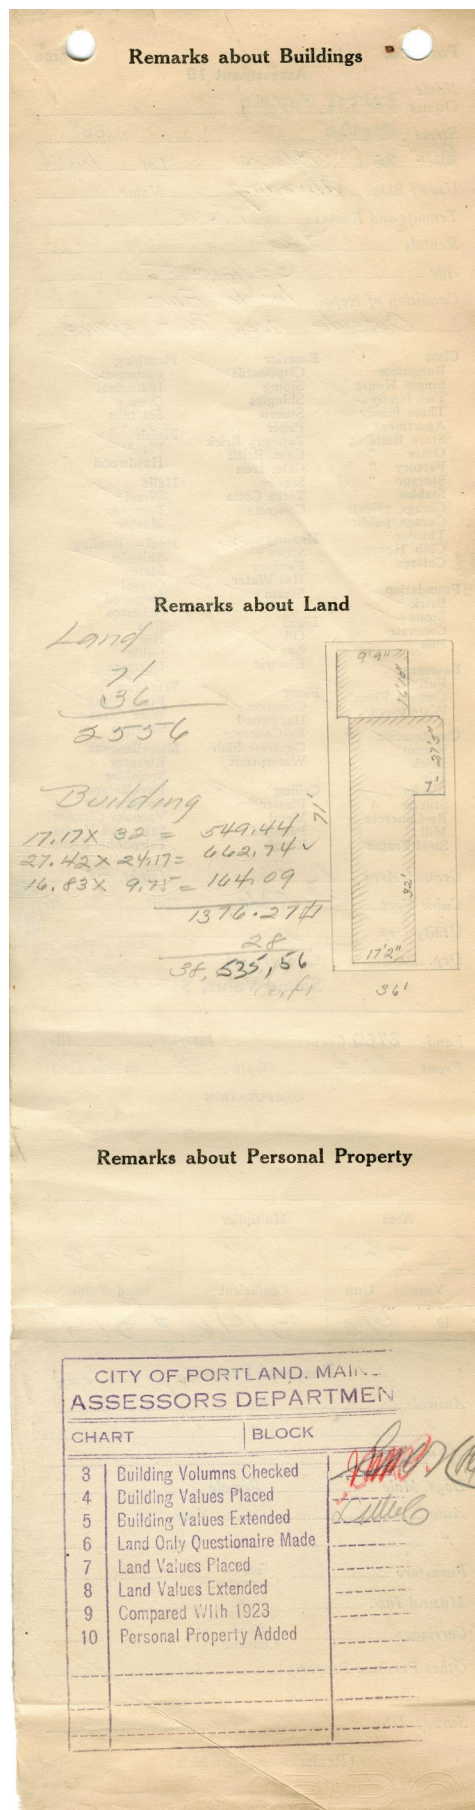 Remarks about Buildings
Remarks about Land
Land
71
36
2556
9'9"
16'10"
27'5"
7'
71'
32'
17'2"
36'
Building
17.17 X 32 = 549.44
27.42 X 24.17 = 662.74 ✓
16.83 X 9.75 = 164.09
1376.27
28
38,535,56
Remarks about Personal Property
CITY OF PORTLAND, MAIN
ASSESSORS DEPARTMEN
CHART BLOCK
3 Building Volumns Checked
4 Building Values Placed
5 Building Values Extended
6 Land Only Questionaire Made
7 Land Values Placed
8 Land Values Extended
9 Compared With 1923
10 Personal Property Added